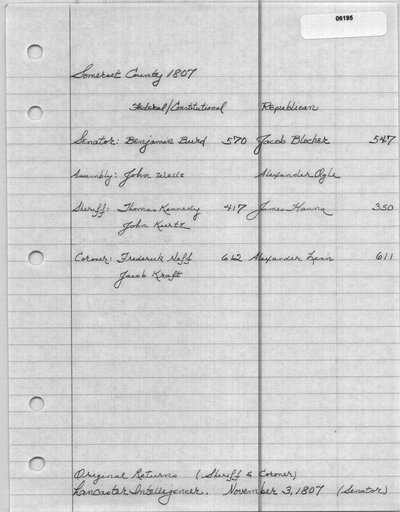 06195
Somerset County 1807
Federal/Constitutional Republican
Senator: Benjamin Burd 570 Jacob Blocher 547
Assembly: John Wells Alexander Ogle
Sheriff: Thomas Kennedy 417 James Hanna 350
John Kurtz
Coroner: Frederick Neff 662 Alexander 611
Jacob Kraft
Original Returns (Sheriff & Coroner)
Lancaster Intelligencer, November 3, 1807 (Senator)